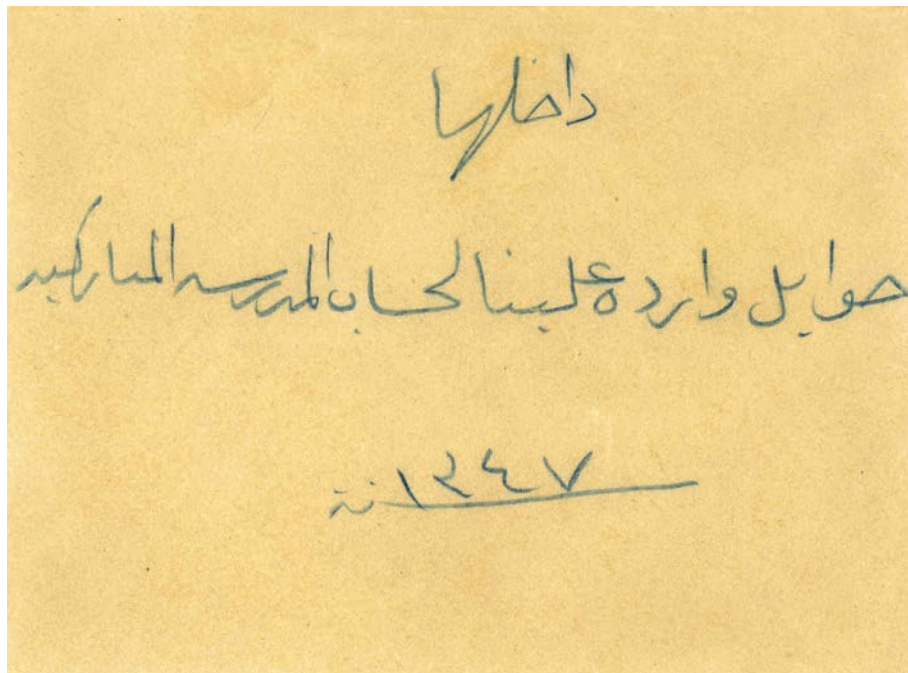 داخلها
حوايل وارده علينا لحساب المدرسه المباركيه
سنة ١٣٤٧